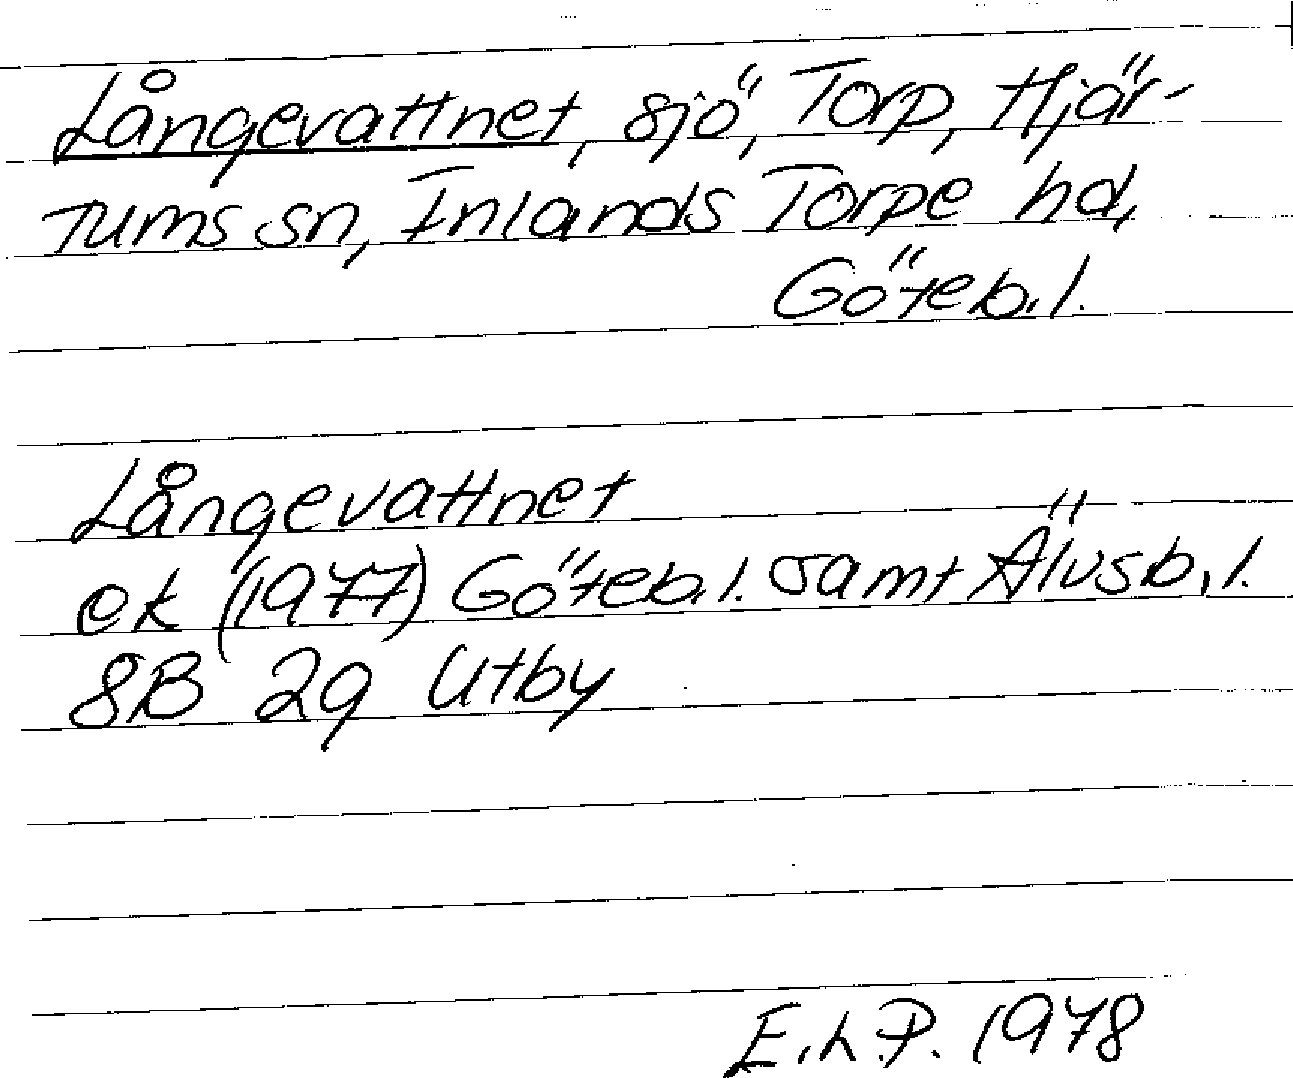 Långevattnet, sjö, Torp, Hjär-
tums sn, Inlands Torpe hd,
Göteb. l.
Långevattnet
ek (1977) Göteb. l. samt Älvsb. l.
8B 2g Utby
E.L.P. 1978